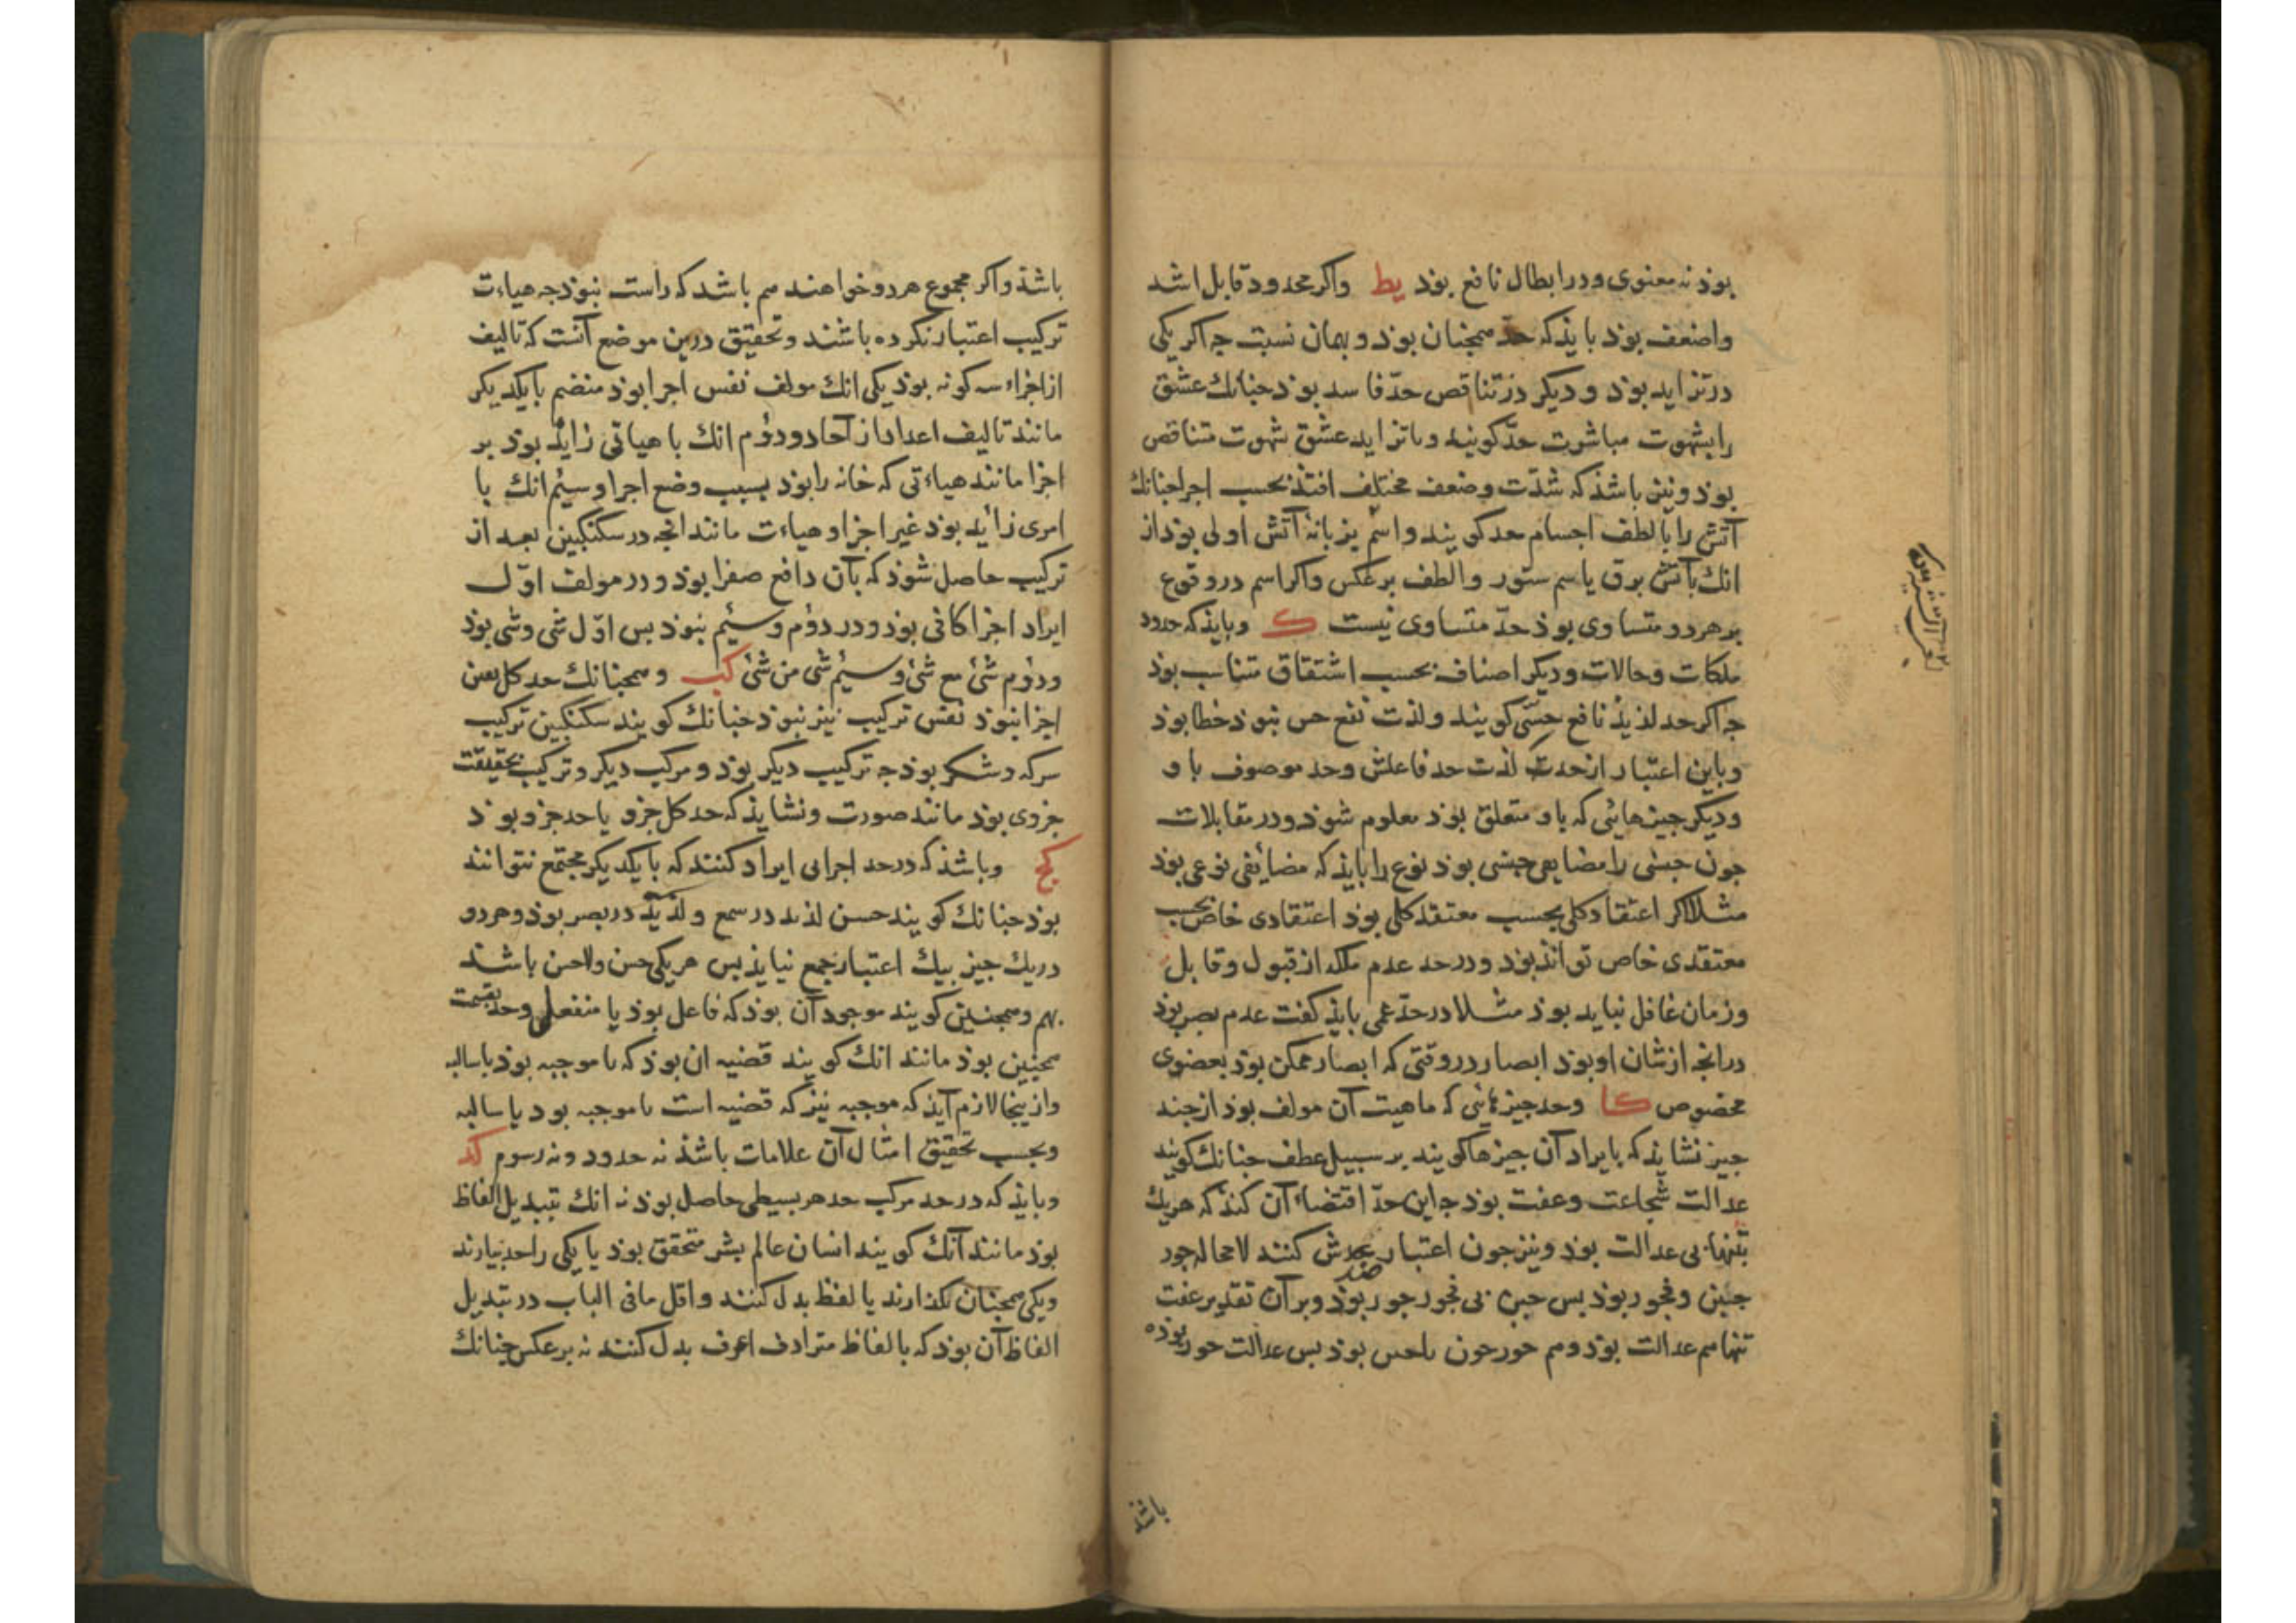 بوذ نه معنوی و در ابطال نافع بوذ يط واکر محدود قابل اشد
واضعف بوذ بایذ که حدّ همجنان بوذ و بهمان نسبت جه اکر یکی
در تزاید بوذ و دیکر در تناقص حدّ فاسد بوذ جنانك عشق
را بشهوت مباشرت حدّ کویند و با تزاید عشق شهوت متناقص
بوذ و نیز باشذ که شدّت وضعف مختلف افتذ بحسب اجزا جنانك
آتش را بالطف اجسام حد کویند و اسم بزبانهٔ آتش اولی بوذ از
انك بآتش برق یا سم ستور و الطف برعکس و اکر اسم در وقوع
بر هر دو متساوی بوذ حدّ متساوی نیست ك و بایذ که حدود
ملکات و حالات و دیکر اصناف بحسب اشتقاق متناسب بوذ
جه اکر حد لذیذ نافع حسّی کویند و لذت نفع حس نبوذ خطا بوذ
و باین اعتبار از حدّ لذت حد فاعلش و حد موصوف با و
و دیکر جیزهائی که باو متعلق بوذ معلوم شوذ و در مقابلات
جون جنسی را مضایفی جنسی بوذ نوع را بایذ که مضایفی نوعی بوذ
مثلا اکر اعتقاد کلی بحسب معتقد کلی بوذ اعتقادی خاص بحسب
معتقدی خاص تواند بوذ و در حد عدم ملکه از قبول و قابل
و زمان غافل نباید بوذ مثلا در حدّ عمی بایذ کفت عدم بصر بوذ
در انجه از شان او بوذ ابصار در وقتی که ابصار ممکن بوذ بعضوی
مخصوص كا و حد جیزهائی که ماهیت آن مولف بوذ از جند
جیز نشایذ که بایراد آن جیزها کویند بر سبیل عطف جنانك کویند
عدالت شجاعت و عفت بوذ جه این حدّ اقتضاء آن کند که هر یك
بتنهائی عدالت بوذ و نیز جون اعتبار ضدش کنند لا محاله جور
جبن و فجور بوذ بس جبن بی فجور جور بوذ و بر آن تقدیر عفت
تنها هم عدالت بوذ و هم جور جون با جبن بوذ بس عدالت جور بوذه
باشذ
باشذ و اکر مجموع هر دو خواهند هم باشد که راست نبوذ جه هیاءت
ترکیب اعتبار نکرده باشند و تحقیق درین موضع آنست که تالیف
از اجزاء سه کونه بوذ یکی انك مولف نفس اجزا بوذ منضم با یکدیکر
مانند تالیف اعداد از آحاد و دوُم انك با هیاتی زاید بوذ بر
اجزا مانند هیاءتی که خانه را بوذ بسبب وضع اجزا و سیُم انك با
امری زاید بوذ غیر اجزا و هیاءت مانند انجه در سکنکبین بعد از
ترکیب حاصل شوذ که بآن دافع صفرا بوذ و در مولف اوّل
ایراد اجزا کافی بوذ و در دوُم و سیُم نبوذ بس اوّل شی و شی بوذ
و دوُم شئ مع شئ و سیُم شی من شئ كب و همجنانك حد کل بعین
اجزا نبوذ نفس ترکیب نیز نبوذ جنانك کویند سکنکبین ترکیب
سرکه و شکر بوذ جه ترکیب دیکر بوذ و مرکب دیکر و ترکیب بحقیقت
جزوی بوذ مانند صورت و نشایذ که حد کل جزو یا حد جزو بوذ
كج و باشذ که در حد اجزایی ایراد کنند که با یکدیکر مجتمع نتوانند
بوذ جنانك کویند حسن لذیذ در سمع و لذیذ در بصر بوذ و هر دو
در یك جیز بیك اعتبار جمع نیایذ بس هر یکی حسن و لاحسن باشد
بهم و همجنین کویند موجود آن بوذ که فاعل بوذ یا منفعل و حد بقسمت
همجنین بوذ مانند انك کویند قضیه ان بوذ که یا موجبه بوذ یا سالبه
و ازینجا لازم آیذ که موجبه نیز که قضیه است یا موجبه بود یا سالبه
و بحسب تحقیق امثال آن علامات باشذ نه حدود و نه رسوم كد
و بایذ که در حد مرکب حد هر بسیطی حاصل بوذ نه انك تبدیل الفاظ
بوذ مانند آنك کویند انسان عالم بشر متحقق بوذ یا یکی را حد بیارند
و یکی همجنان بکذارند یا لفظ بدل کنند و اقل ما فی الباب در تبدیل
الفاظ آن بوذ که بالفاظ مترادف اعرف بدل کنند نه برعکس جنانك